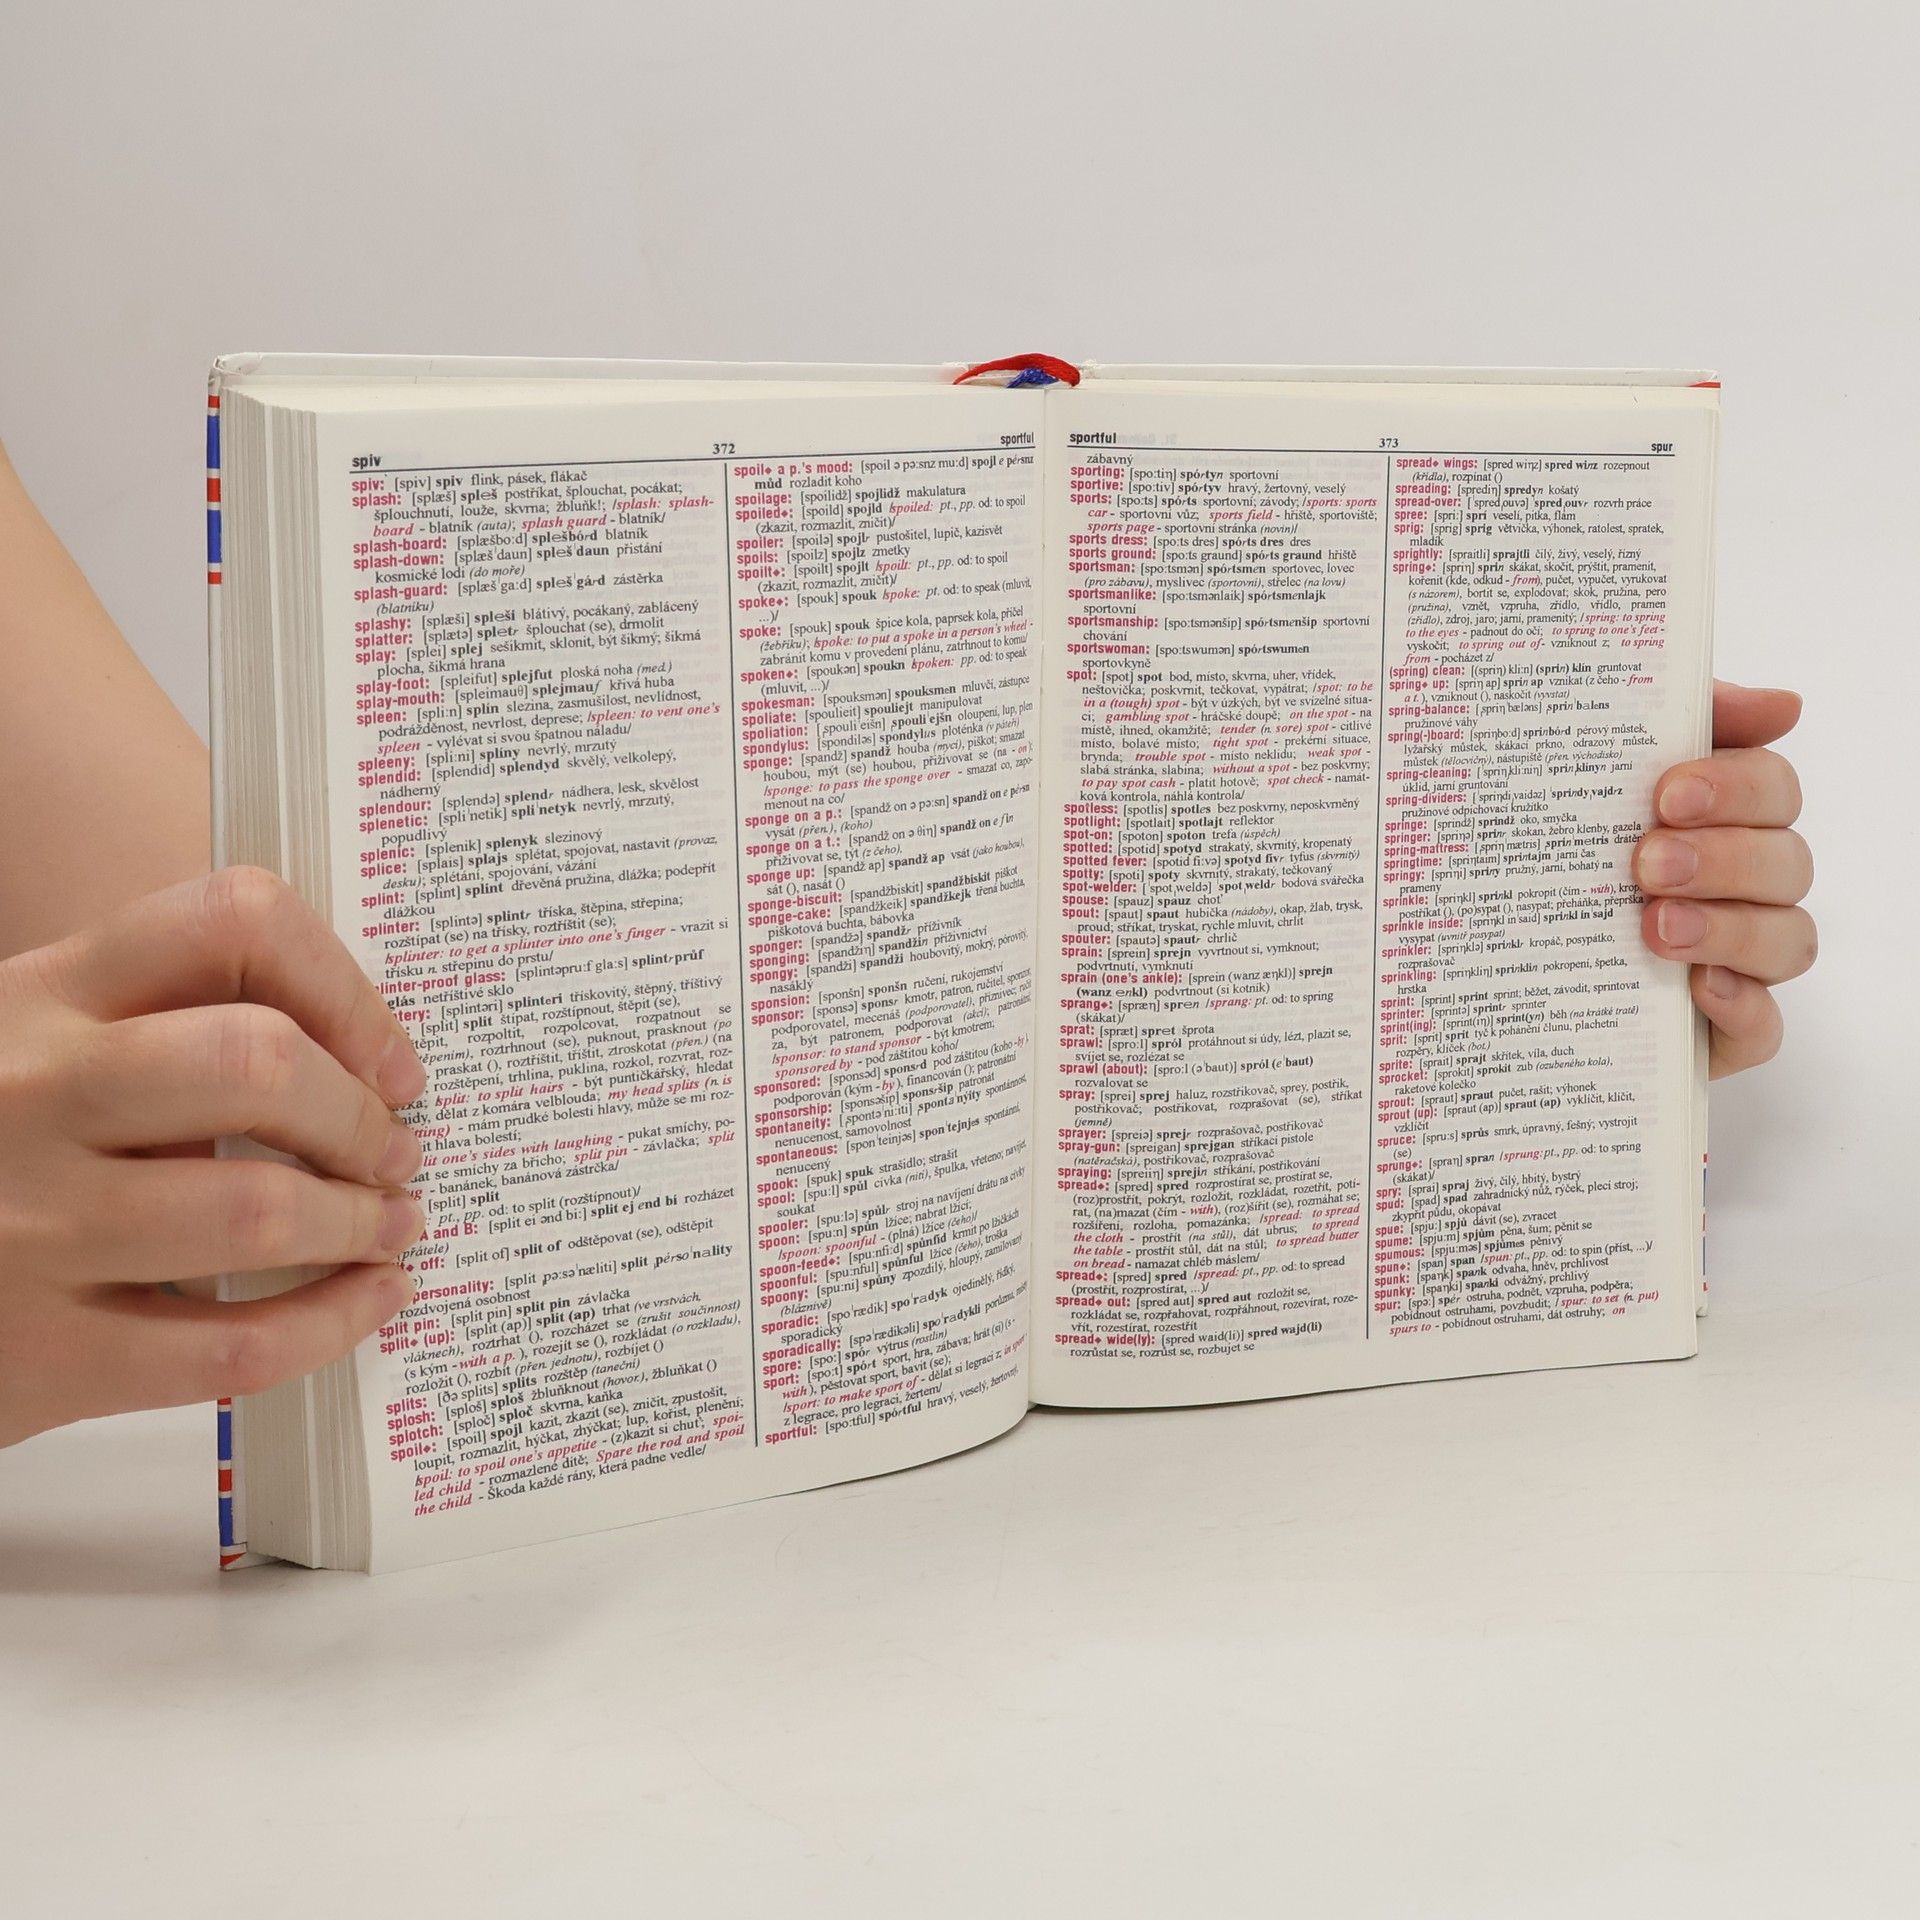 spiv 372 sportful
spiv: [spiv] spiv flink, pásek, flákač
splash: [splæš] spleš postříkat, šplouchat, pocákat;
šplouchnutí, louže, skvrna; žbluňk!; /splash: splash-
board - blatník (auta); splash guard - blatník/
splash-board: [splæšbo:d] splešbórd blatník
splash-down: [splæš'daun] spleš'daun přistání
kosmické lodi (do moře)
splash-guard: [splæš'ga:d] spleš'gárd zástěrka
(blatníku)
splashy: [splæši] spleši blátivý, pocákaný, zablácený
splatter: [splætə] spletr šplouchat (se), drmolit
splay: [splei] splej sešikmit, sklonit, být šikmý; šikmá
plocha, šikmá hrana
splay-foot: [spleifut] splejfut ploská noha (med.)
splay-mouth: [spleimauθ] splejmauf křivá huba
spleen: [spli:n] splín slezina, zasmušilost, nevlídnost,
podrážděnost, nevrlost, deprese; /spleen: to vent one's
spleen - vylévat si svou špatnou náladu/
spleeny: [spli:ni] splíny nevrlý, mrzutý
splendid: [splendid] splendyd skvělý, velkolepý,
nádherný
splendour: [splendə] splendr nádhera, lesk, skvělost
splenetic: [spli'netik] spli'netyk nevrlý, mrzutý,
popudlivý
splenic: [splenik] splenyk slezinový
splice: [splais] splajs splétat, spojovat, nastavit (provaz,
desku); splétání, spojování, vázání
splint: [splint] splint dřevěná pružina, dlážka; podepřít
dlážkou
splinter: [splintə] splintr tříska, štěpina, střepina;
rozštípat (se) na třísky, roztříštit (se);
/splinter: to get a splinter into one's finger - vrazit si
třísku n. střepinu do prstu/
linter-proof glass: [splintəpru:f gla:s] splintrprúf
glás netříštivé sklo
tery: [splintəri] splinteri třískovitý, štěpný, tříštivý
[split] split štípat, rozštípnout, štěpit (se),
štěpit, rozpoltit, rozpolcovat, rozpatnout se
těpením), roztrhnout (se), puknout, prasknout (po
praskat (), roztříštit, tříštit, ztroskotat (přen.) (na
rozštěpení, trhlina, puklina, rozkol, rozvrat, roz-
/split: to split hairs - být puntičkářský, hledat
dělat z komára velblouda; my head splits (n. is
tting) - mám prudké bolesti hlavy, může se mi roz-
it hlava bolestí;
lit one's sides with laughing - pukat smíchy, po-
at se smíchy za břicho; split pin - závlačka; split
- banánek, banánová zástrčka/
[split] split
pt., pp. od: to split (rozštípnout)/
A and B: [split ei ənd bi:] split ej end bí rozházet
(přátele)
off: [split of] split of odštěpovat (se), odštěpit
personality: [split ˌpə:sə'næliti] split ˌpérso'nality
rozdvojená osobnost
split pin: [split pin] split pin závlačka
split◆ (up): [split (ap)] split (ap) trhat (ve vrstvách,
vláknech), roztrhat (), rozcházet se (zrušit součinnost)
(s kým - with a p.), rozejít se (), rozkládat (o rozkladu),
rozložit (), rozbít (přen. jednotu), rozbíjet ()
splits: [ðə splits] splits rozštěp (taneční)
splosh: [sploš] sploš žbluňknout (hovor.), žbluňkat ()
splotch: [sploč] sploč skvrna, kaňka
spoil◆: [spoil] spojl kazit, zkazit (se), zničit, zpustošit,
loupit, rozmazlit, hýčkat, zhýčkat; lup, kořist, plenění;
/spoil: to spoil one's appetite - (z)kazit si chuť; spoi-
led child - rozmazlené dítě; Spare the rod and spoil
the child - Škoda každé rány, která padne vedle/
spoil◆ a p.'s mood: [spoil ə pə:snz mu:d] spojl e pérsnz
můd rozladit koho
spoilage: [spoilidž] spojlidž makulatura
spoiled◆: [spoild] spojld /spoiled: pt., pp. od: to spoil
(zkazit, rozmazlit, zničit)/
spoiler: [spoilə] spojlr pustošitel, lupič, kazisvět
spoils: [spoilz] spojlz zmetky
spoilt◆: [spoilt] spojlt /spoilt: pt., pp. od: to spoil
(zkazit, rozmazlit, zničit)/
spoke◆: [spouk] spouk /spoke: pt. od: to speak (mluvit,
...)/
spoke: [spouk] spouk špice kola, paprsek kola, příčel
(žebříku); /spoke: to put a spoke in a person's wheel -
zabránit komu v provedení plánu, zatrhnout to komu/
spoken◆: [spoukən] spoukn /spoken: pp. od: to speak
(mluvit, ...)/
spokesman: [spouksmən] spouksmen mluvčí, zástupce
spoliate: [spoulieit] spouliejt manipulovat
spoliation: [ˌspouli'eišn] ˌspouli'ejšn oloupení, lup, plen
spondylus: [spondiləs] spondylus ploténka (v páteři)
sponge: [spandž] spandž houba (mycí), piškot; smazat
houbou, mýt (se) houbou, přiživovat se (na - on);
/sponge: to pass the sponge over - smazat co, zapo-
menout na co/
sponge on a p.: [spandž on ə pə:sn] spandž on e pérsn
vysát (přen.), (koho)
sponge on a t.: [spandž on ə θiŋ] spandž on e fin
přiživovat se, týt (z čeho),
sponge up: [spandž ap] spandž ap vsát (jako houbou),
sát (), nasát ()
sponge-biscuit: [spandžbiskit] spandžbiskit piškot
sponge-cake: [spandžkeik] spandžkejk třená buchta,
piškotová buchta, bábovka
sponger: [spandžə] spandžr příživník
sponging: [spandžiŋ] spandžin příživnictví
spongy: [spandži] spandži houbovitý, mokrý, pórovitý,
nasáklý
sponsion: [sponšn] sponšn ručení, rukojemství
sponsor: [sponsə] sponsr kmotr, patron, ručitel, sponzor,
podporovatel, mecenáš (podporovatel), příznivec; ručit
za, být patronem, podporovat (akci); patronátní,
/sponsor: to stand sponsor - být kmotrem;
sponsored by - pod záštitou koho/
sponsored: [sponsəd] sponsrd pod záštitou (koho - by),
podporován (kým - by), financován (); patronátní
sponsorship: [sponsəšip] sponsršip patronát
spontaneity: [ˌspontə'ni:iti] ˌsponta'nýity spontánnost,
nenucenost, samovolnost
spontaneous: [spon'teinjəs] spon'tejnjes spontánní,
nenucený
spook: [spuk] spuk strašidlo; strašit
spool: [spu:l] spůl cívka (nití), špulka, vřeteno; navíjet,
soukat
spooler: [spu:lə] spůlr stroj na navíjení drátu na cívky
spoon: [spu:n] spůn lžíce; nabrat lžící;
/spoon: spoonful - (plná) lžíce (čeho)/
spoon-feed◆: [spu:nfi:d] spůnfíd krmit po lžičkách
spoonful: [spu:nful] spůnful lžíce (čeho), troška
spoony: [spu:ni] spůny zpozdilý, hloupý, zamilovaný
(bláznivě)
sporadic: [spo'rædik] spo'radyk ojedinělý, řídký,
sporadický
sporadically: [spə'rædikəli] spo'radykli porůznu,
spore: [spo:] spór výtrus (rostlin)
sport: [spo:t] spórt sport, hra, zábava; hrát (si) (s -
with), pěstovat sport, bavit (se);
/sport: to make sport of - dělat si legraci z; in sport -
z legrace, pro legraci, žertem/
sportful: [spo:tful] spórtful hravý, veselý, žertovný,
sportful 373 spur
zábavný
sporting: [spo:tiŋ] spórtyn sportovní
sportive: [spo:tiv] spórtyv hravý, žertovný, veselý
sports: [spo:ts] spórts sportovní; závody; /sports: sports
car - sportovní vůz; sports field - hřiště, sportoviště;
sports page - sportovní stránka (novin)/
sports dress: [spo:ts dres] spórts dres dres
sports ground: [spo:ts graund] spórts graund hřiště
sportsman: [spo:tsmən] spórtsmen sportovec, lovec
(pro zábavu), myslivec (sportovní), střelec (na lovu)
sportsmanlike: [spo:tsmənlaik] spórtsmenlajk
sportovní
sportsmanship: [spo:tsmənšip] spórtsmenšip sportovní
chování
sportswoman: [spo:tswumən] spórtswumen
sportovkyně
spot: [spot] spot bod, místo, skvrna, uher, vřídek,
neštovička; poskvrnit, tečkovat, vypátrat; /spot: to be
in a (tough) spot - být v úzkých, být ve svízelné situa-
ci; gambling spot - hráčské doupě; on the spot - na
místě, ihned, okamžitě; tender (n. sore) spot - citlivé
místo, bolavé místo; tight spot - prekérní situace,
brynda; trouble spot - místo neklidu; weak spot -
slabá stránka, slabina; without a spot - bez poskvrny;
to pay spot cash - platit hotově; spot check - namát-
ková kontrola, náhlá kontrola/
spotless: [spotlis] spotles bez poskvrny, neposkvrněný
spotlight: [spotlait] spotlajt reflektor
spot-on: [spoton] spoton trefa (úspěch)
spotted: [spotid] spotyd strakatý, skvrnitý, kropenatý
spotted fever: [spotid fi:və] spotyd fívr tyfus (skvrnitý)
spotty: [spoti] spoty skvrnitý, strakatý, tečkovaný
spot-welder: ['spotˌweldə] 'spotˌweldr bodová svářečka
spouse: [spauz] spauz choť
spout: [spaut] spaut hubička (nádoby), okap, žlab, trysk,
proud; stříkat, tryskat, rychle mluvit, chrlit
spouter: [spautə] spautr chrlič
sprain: [sprein] sprejn vyvrtnout si, vymknout;
podvrtnutí, vymknutí
sprain (one's ankle): [sprein (wanz æŋkl)] sprejn
(wanz enkl) podvrtnout (si kotník)
sprang◆: [spræŋ] spren /sprang: pt. od: to spring
(skákat)/
sprat: [spræt] spret šprota
sprawl: [spro:l] spról protáhnout si údy, lézt, plazit se,
svíjet se, rozlézat se
sprawl (about): [spro:l (ə'baut)] spról (e'baut)
rozvalovat se
spray: [sprei] sprej haluz, rozstřikovač, sprey, postřik,
postřikovač; postřikovat, rozprašovat (se), stříkat
(jemně)
sprayer: [spreiə] sprejr rozprašovač, postřikovač
spray-gun: [spreigan] sprejgan stříkací pistole
(natěračská), postřikovač, rozprašovač
spraying: [spreiiŋ] sprejin stříkání, postřikování
spread◆: [spred] spred rozprostírat se, prostírat se,
(roz)prostřít, pokrýt, rozložit, rozkládat, rozetřít, potí-
rat, (na)mazat (čím - with), (roz)šířit (se), rozmáhat se;
rozšíření, rozloha, pomazánka; /spread: to spread
the cloth - prostřít (na stůl), dát ubrus; to spread
the table - prostřít stůl, dát na stůl; to spread butter
on bread - namazat chléb máslem/
spread◆: [spred] spred /spread: pt., pp. od: to spread
(prostřít, rozprostírat, ...)/
spread◆ out: [spred aut] spred aut rozložit se,
rozkládat se, rozpřahovat, rozpřáhnout, rozevírat, roze-
vřít, rozestírat, rozestřít
spread◆ wide(ly): [spred waid(li)] spred wajd(li)
rozrůstat se, rozrůst se, rozbujet se
spread◆ wings: [spred wiŋz] spred winz rozepnout
(křídla), rozpínat ()
spreading: [sprediŋ] spredyn košatý
spread-over: ['spredˌouvə] 'spredˌouvr rozvrh práce
spree: [spri:] sprí veselí, pitka, flám
sprig: [sprig] sprig větvička, výhonek, ratolest, spratek,
mladík
sprightly: [spraitli] sprajtli čilý, živý, veselý, řízný
spring◆: [spriŋ] sprin skákat, skočit, prýštit, pramenit,
kořenit (kde, odkud - from), pučet, vypučet, vyrukovat
(s názorem), bortit se, explodovat; skok, pružina, pero
(pružina), vznět, vzpruha, zřídlo, vřídlo, pramen
(zřídlo), zdroj, jaro; jarní, pramenitý; /spring: to spring
to the eyes - padnout do očí; to spring to one's feet -
vyskočit; to spring out of - vzniknout z; to spring
from - pocházet z/
(spring) clean: [(spriŋ) kli:n] (sprin) klín gruntovat
spring◆ up: [spriŋ ap] sprin ap vznikat (z čeho - from
a t.), vzniknout (), naskočit (vyvstat)
spring-balance: [ˌspriŋ'bæləns] ˌsprin'balens
pružinové váhy
spring(-)board: [spriŋbo:d] sprinbórd pérový můstek,
lyžařský můstek, skákací prkno, odrazový můstek,
můstek (tělocvičný), nástupiště (přen. východisko)
spring-cleaning: ['spriŋˌkli:niŋ] 'sprinˌklínyn jarní
úklid, jarní gruntování
spring-dividers: ['spriŋdiˌvaidəz] 'sprindyˌvajdrz
pružinové odpichovací kružítko
springe: [sprindž] sprindž oko, smyčka
springer: [spriŋə] sprinr skokan, žebro klenby, gazela
spring-mattress: [ˌspriŋ'mætris] ˌsprin'metris
springtime: [spriŋtaim] sprintajm jarní čas
springy: [spriŋi] spriny pružný, jarní, bohatý na
prameny
sprinkle: [spriŋkl] sprinkl pokropit (čím - with), krop
postříkat (), (po)sypat (), nasypat; přeháňka, přeprška
sprinkle inside: [spriŋkl in'said] sprinkl in'sajd
vysypat (uvnitř posypat)
sprinkler: [spriŋklə] sprinklr kropáč, posypátko,
rozprašovač
sprinkling: [spriŋkliŋ] sprinklin pokropení, špetka,
hrstka
sprint: [sprint] sprint sprint; běžet, závodit, sprintovat
sprinter: [sprintə] sprintr sprinter
sprint(ing): [sprint(iŋ)] sprint(yn) běh (na krátké tratě)
sprit: [sprit] sprit tyč k pohánění člunu, plachetní
rozpěry, klíček (bot.)
sprite: [sprait] sprajt skřítek, víla, duch
sprocket: [sprokit] sprokit zub (ozubeného kola),
raketové kolečko
sprout: [spraut] spraut pučet, rašit; výhonek
sprout (up): [spraut (ap)] spraut (ap) vyklíčit, klíčit,
vzklíčit
spruce: [spru:s] sprůs smrk, úpravný, fešný; vystrojit
(se)
sprung◆: [spraŋ] spran /sprung: pt., pp. od: to spring
(skákat)/
spry: [sprai] spraj živý, čilý, hbitý, bystrý
spud: [spad] spad zahradnický nůž, rýček, plecí stroj;
zkypřit půdu, okopávat
spue: [spju:] spjů dávit (se), zvracet
spume: [spju:m] spjům pěna, šum; pěnit se
spumous: [spju:məs] spjůmes pěnivý
spun◆: [span] span /spun: pt., pp. od: to spin (příst, ...)/
spunk: [spaŋk] spank odvaha, hněv, prchlivost
spunky: [spaŋki] spanki odvážný, prchlivý
spur: [spə:] spér ostruha, podnět, vzpruha, podpěra;
pobídnout ostruhami, povzbudit; /spur: to set (n. put)
spurs to - pobídnout ostruhami, dát ostruhy; on